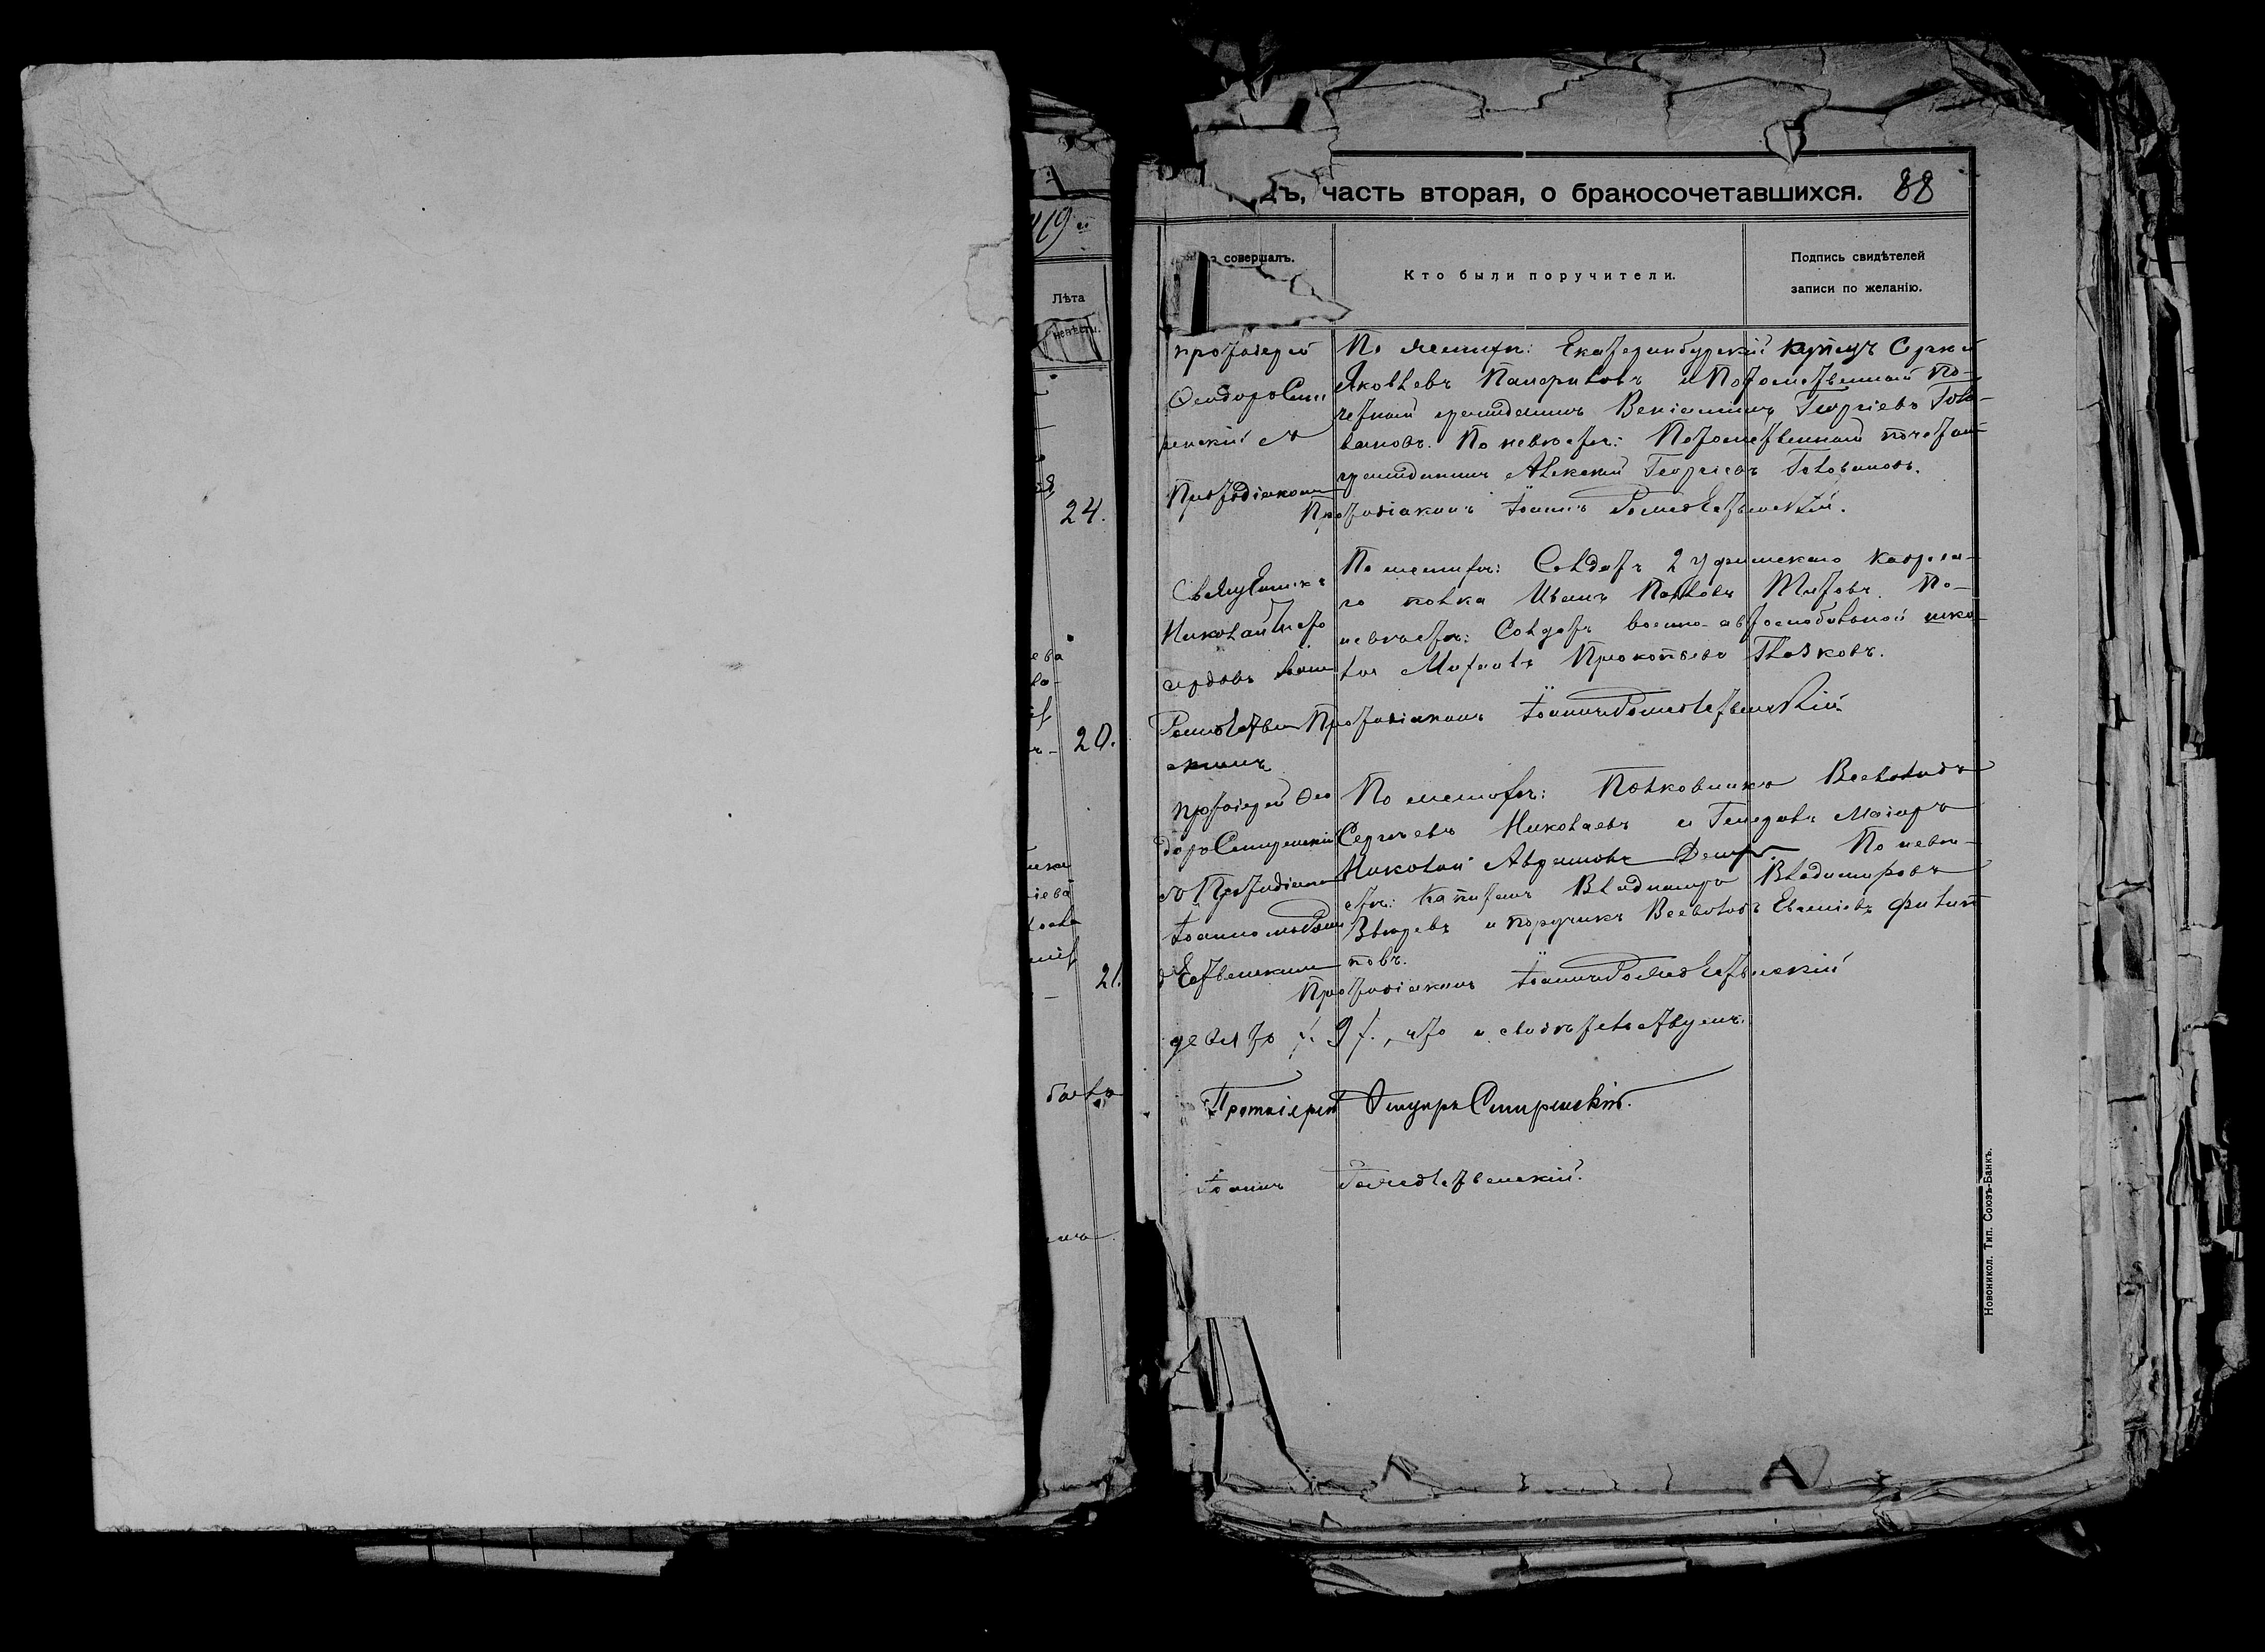 дъ, часть вторая, о бракосочетавшихся. 88
19
Лѣта
невѣсты.
24.
20.
21.
совершалъ.
Кто были поручители.
Подпись свидѣтелей
записи по желанію.
протоіерей
Ѳеодоръ
съ
Протодіакономъ
По женихѣ: Екатеринбургскій купецъ Сергѣй
Яковлевъ и Потомственный по-
четный гражданинъ Веніаминъ Георгіевъ Голо-
вановъ. По невѣстѣ: Потомственный почетный
гражданинъ Алексѣй Георгіевъ Головановъ.
Протодіаконъ Іоаннъ Рождественскій.
Священникъ
Николай
Рождествен
скимъ
По женихѣ: Солдатъ 2 Уфимскаго кавалер
го полка Иванъ Павловъ Титовъ. По
невѣстѣ: Солдатъ военно-автомобильной шко
лы Михаилъ Прокопьевъ Глазковъ.
Протодіаконъ Іоаннъ Рождественскій
Протоіерей Ѳео
доръ
съ Протодіакон
Іоанномъ Рож
дественскимъ
По женихѣ: Полковникъ Всеволодъ
Сергѣевъ Николаевъ и Генералъ Маіоръ
Николай Аврамовъ По невѣ-
стѣ: Капитанъ Владиміръ Владиміровъ
Звѣревъ и поручикъ Всеволодъ Евгеніевъ Филип
повъ.
Протодіаконъ Іоаннъ Рождественскій
девять /. 9 /., что и свидѣтельствуемъ.
Протоіерей
Іоаннъ Рождественскій.
Новоникол. Тип. Союзъ-Банкъ.